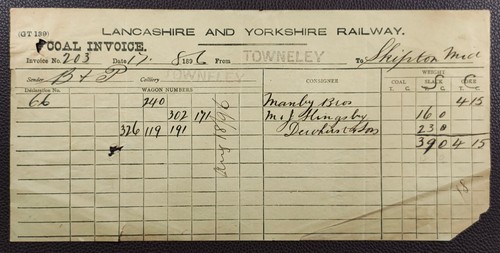 (GT 199)
LANCASHIRE AND YORKSHIRE RAILWAY.
COAL INVOICE.
Invoice No. 203 Date 17. 8 1896 From TOWNELEY To Skipton Mid
Sender B & P Colliery TOWNELEY
Declaration No. WAGON NUMBERS CONSIGNEE WEIGHT
COAL SLACK COKE
T. C. T. C. T. C.
66 240 Manby Bros 4 15
302 171 M & J Slingsby 16 0
326 119 191 Dewhurst & Sons 23 0
39 0 4 15
Aug 18/96
18